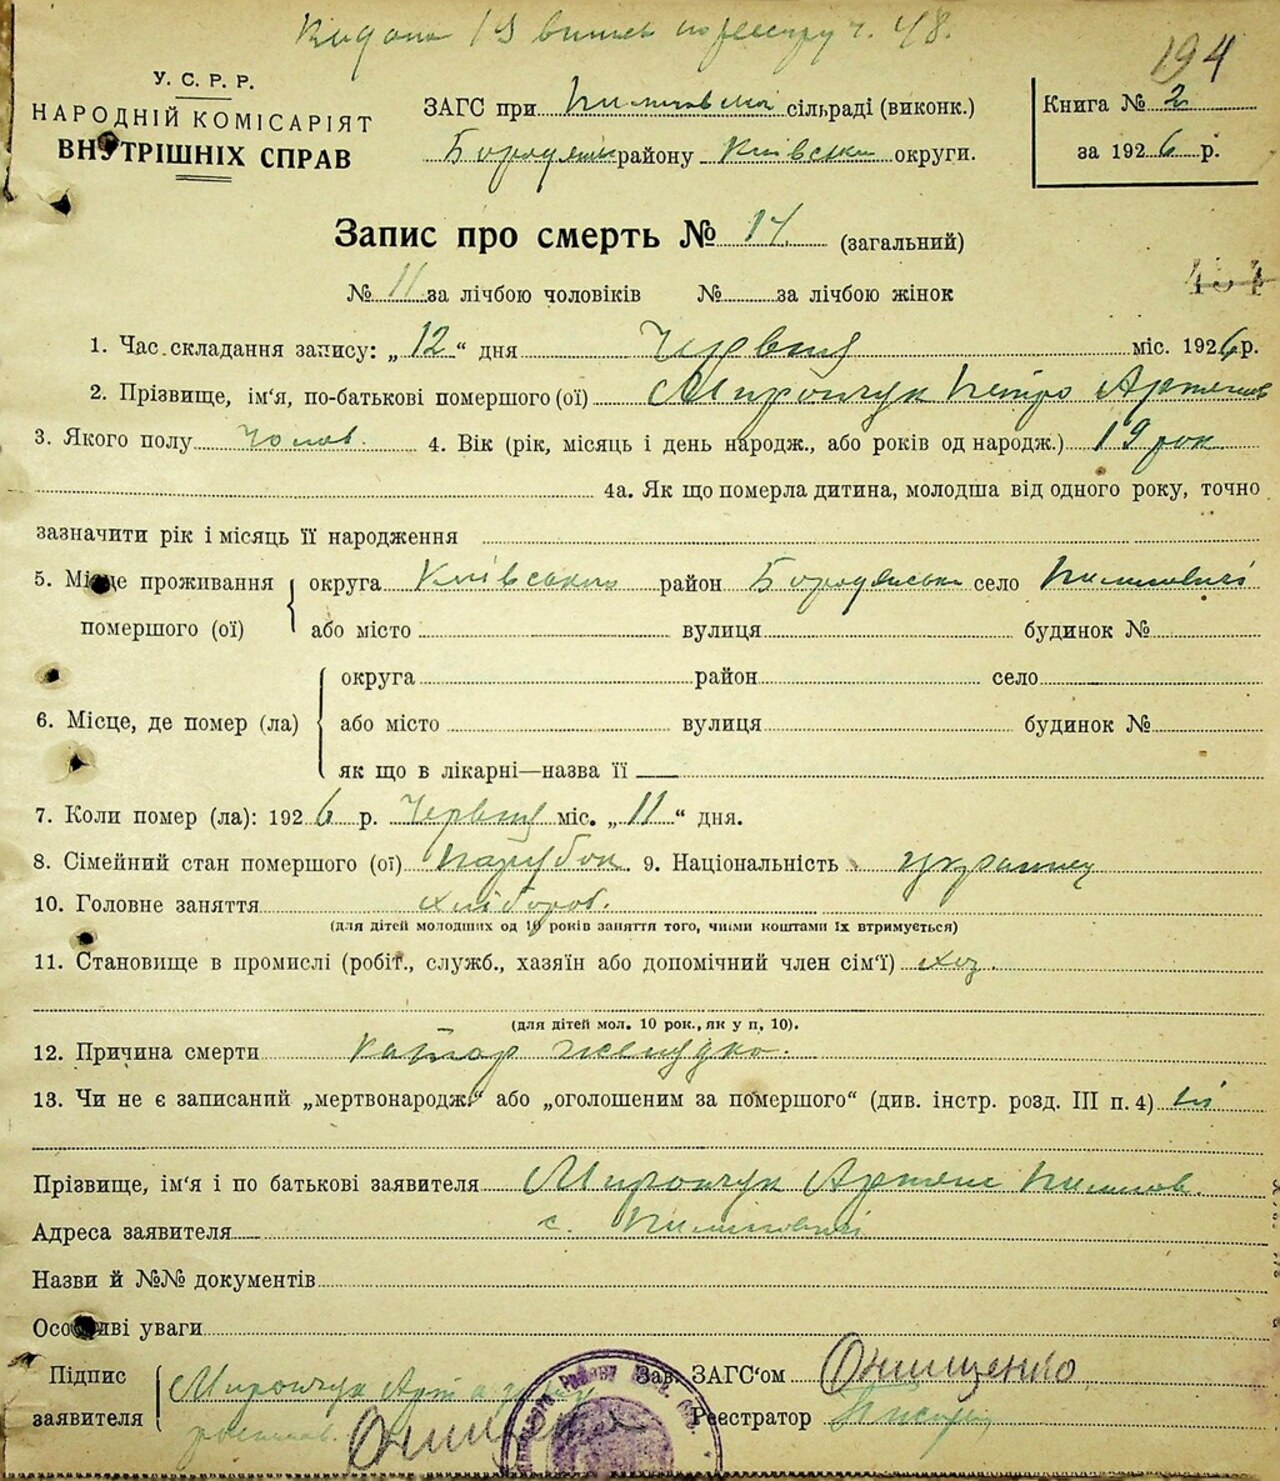 Видано випись по реєстру ч. 48.
194
У. С. Р. Р.
НАРОДНІЙ КОМІСАРІЯТ
ВНУТРІШНІХ СПРАВ
ЗАГС при сільраді (виконк.)
Бородянськ району Київськ округи.
Книга № 2
за 1926 р.
Запис про смерть № 14. (загальний)
№ 11 за лічбою чоловіків № за лічбою жінок
454
1. Час складання запису: „12“ дня Червня міс. 1926 р.
2. Прізвище, ім‘я, по-батькові помершого (ої) Мирончук Петро Артемов
3. Якого полу Чолов. 4. Вік (рік, місяць і день народж., або років од народж.) 19 рок
4а. Як що померла дитина, молодша від одного року, точно
зазначити рік і місяць її народження
5. Місце проживання помершого (ої) округа Київська район Бородянськ село Пилиповичі
або місто вулиця будинок №
6. Місце, де помер (ла) округа район село
або місто вулиця будинок №
як що в лікарні—назва її
7. Коли помер (ла): 1926 р. Червня міс. „11“ дня.
8. Сімейний стан помершого (ої) парубок 9. Національність українец
10. Головне заняття хлібороб.
(для дітей молодших од 10 років заняття того, чиїми коштами їх втримується)
11. Становище в промислі (робіт., служб., хазяїн або допомічний член сім‘ї) хоз.
(для дітей мол. 10 рок., як у п, 10).
12. Причина смерти катар желудка.
13. Чи не є записаний „мертвонародж.“ або „оголошеним за помершого“ (див. інстр. розд. III п. 4) ні
Прізвище, ім‘я і по батькові заявителя Мирончук Артем Пилипов.
Адреса заявителя с. Пилиповичі
Назви й №№ документів
Особливі уваги
Підпис заявителя Мирончук Арт а за його
розписав. Онищенко
Зав. ЗАГС‘ом Онищенко
Реестратор